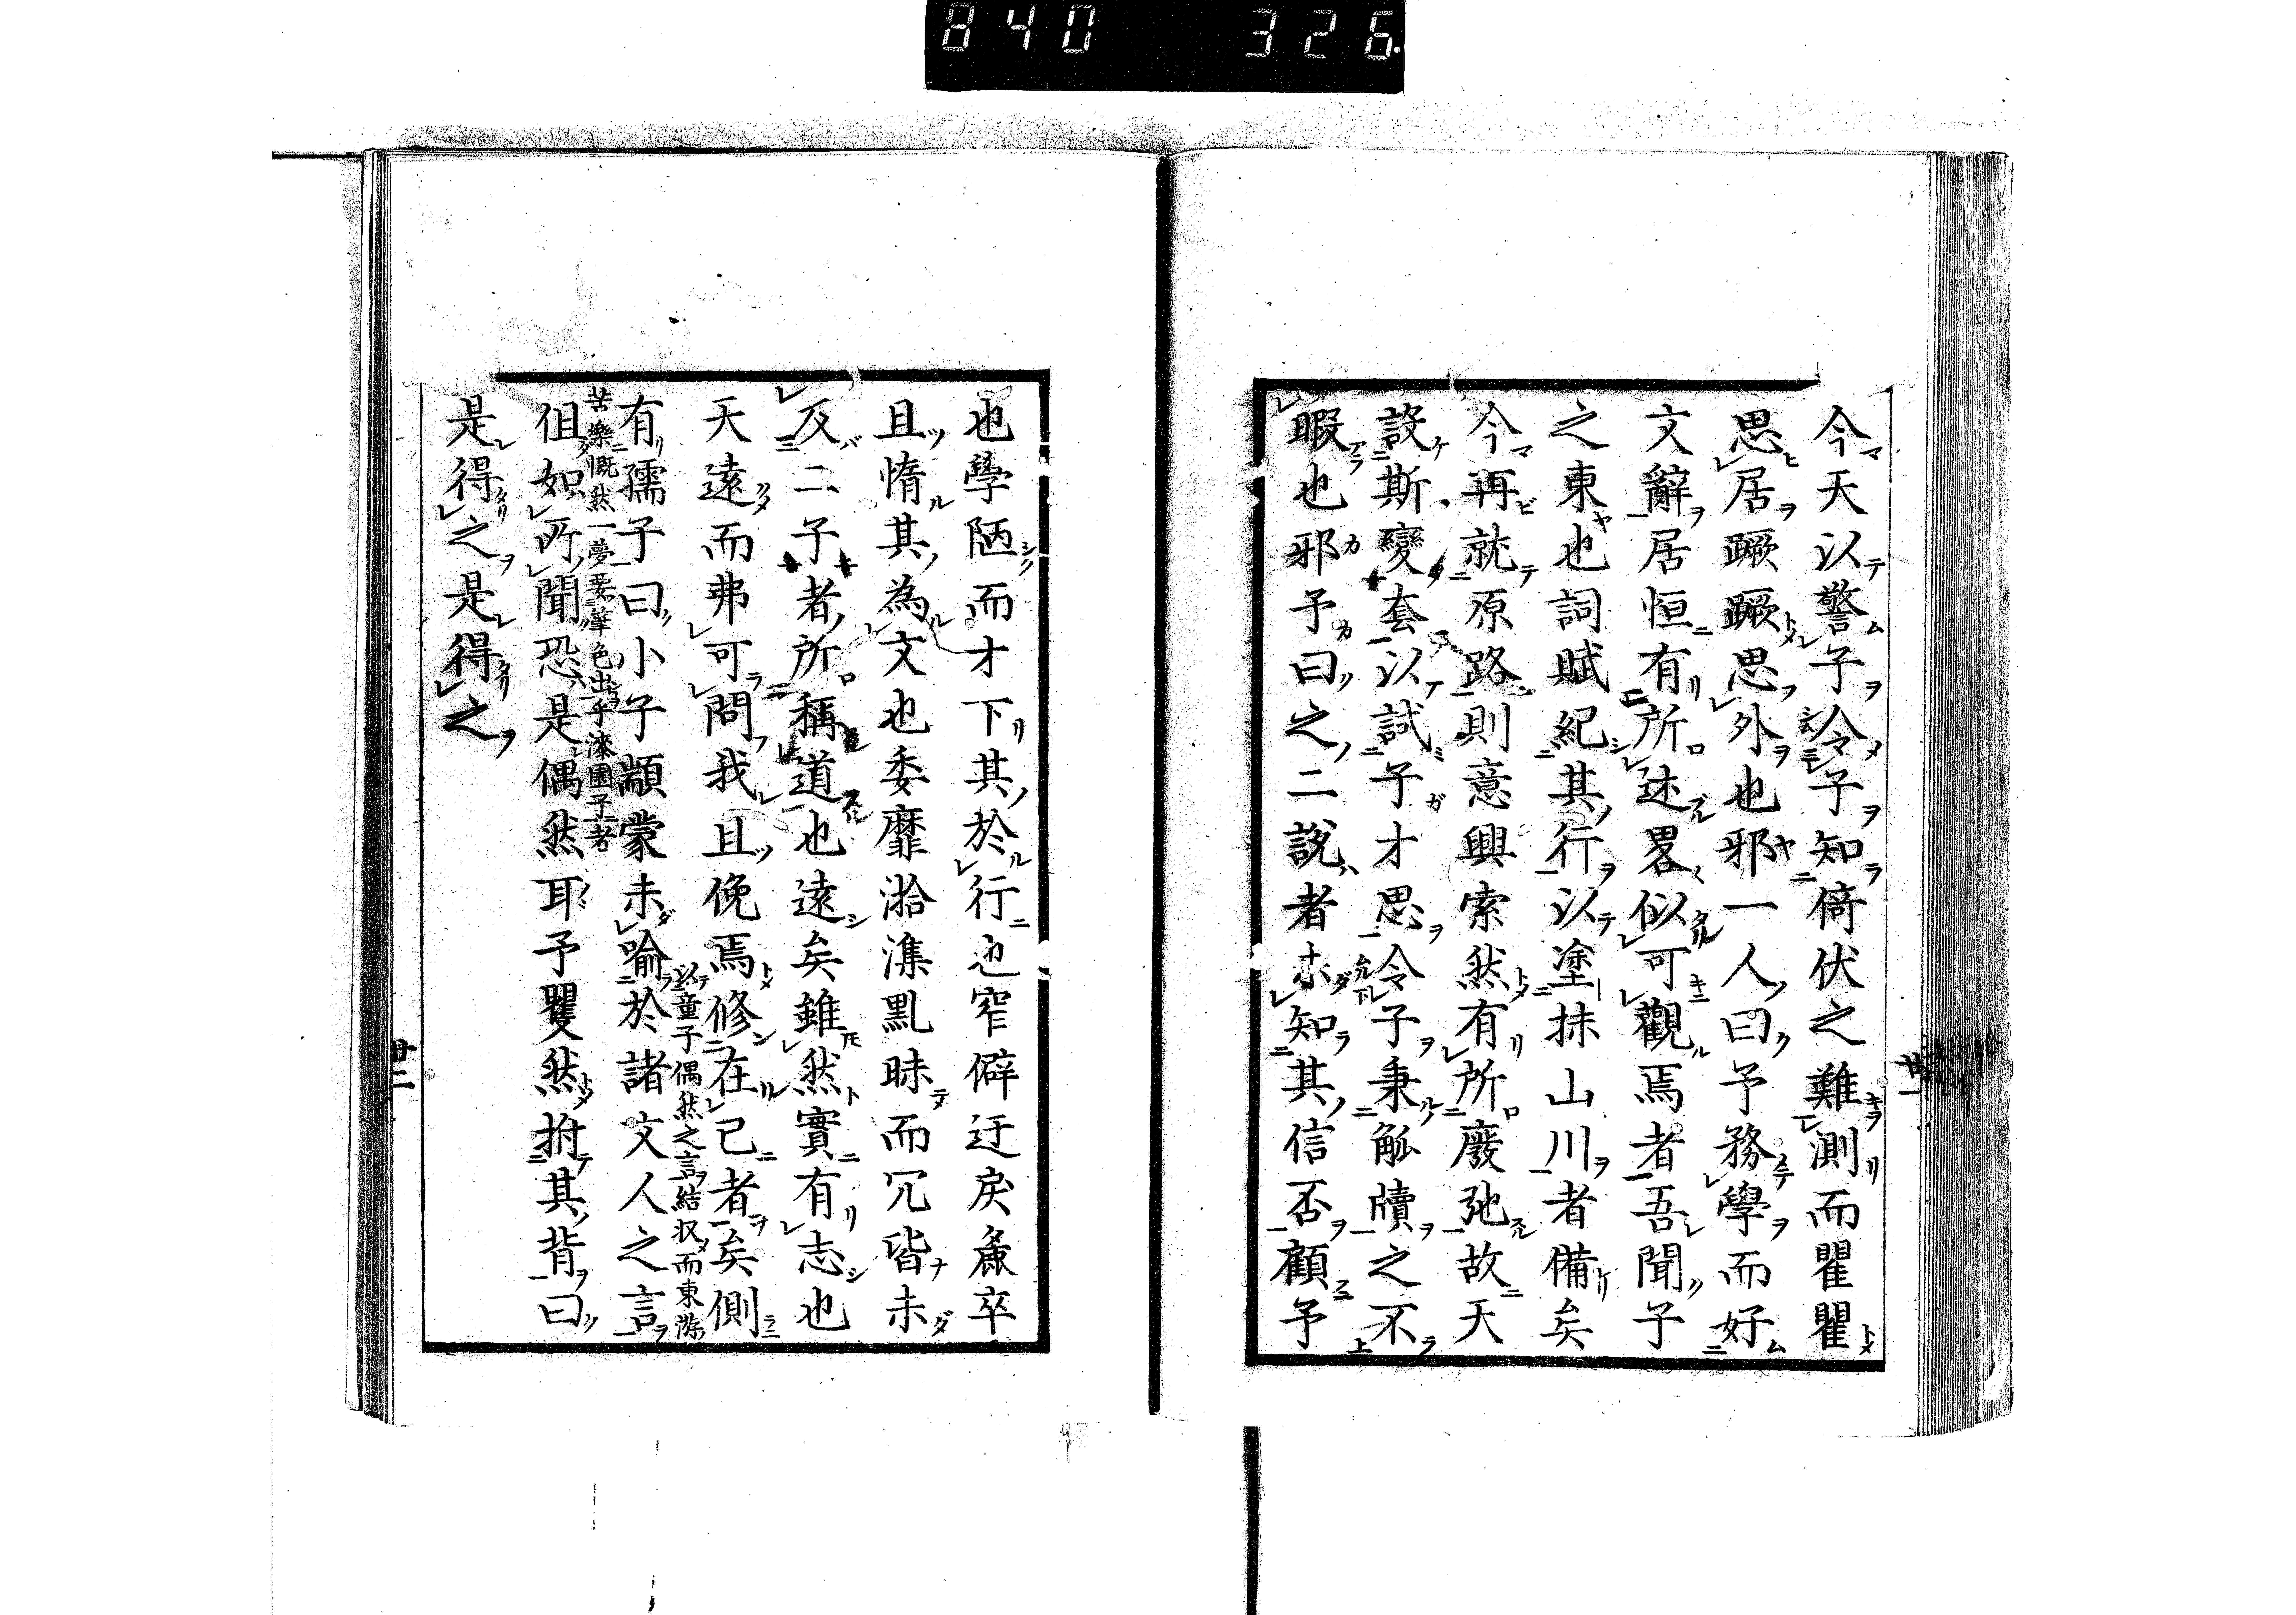 840 326
今天以警子令子知倚伏之難測而瞿瞿
思居蹶蹶思外也邪一人曰予務學而好
文辭居恒有所述畧似可觀焉者吾聞子
之東也詞賦紀其行以塗抹山川者備矣
今再就原路則意興索然有所廢弛故天
設斯變套以試子才思令子秉觚牘之不
暇也邪予曰之二說者未知其信否顧予
也學陋而才下其於行也窄僻迂戾麁卒
且惰其為文也委靡澁濈黑昧而冗皆未
反二子者所稱道也遠矣雖然實有志也
天遠而弗可問我且俛焉修在己者矣側
以童子偶然之言結状而東游
有孺子曰小子顓蒙未喻於諸文人之言
苦樂慨然一夢要華色出乎漆園子者
但如所聞恐是偶然耳予矍然拊其背曰
是得之是得之